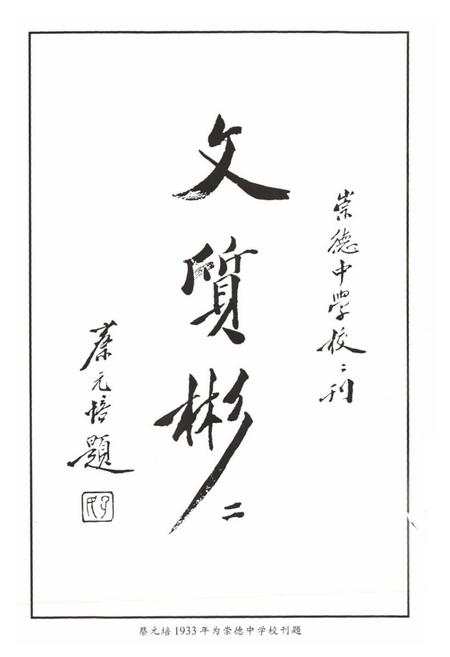 崇德中學校:刊
文質彬二
蔡元培題
蔡元培1933年为崇德中学校刊题